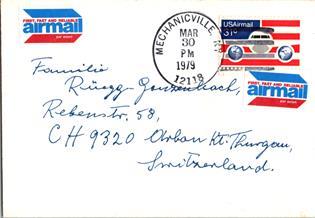 FIRST, FAST AND RELIABLE
airmail
par avion
MECHANICVILLE, NY
MAR
30
PM
1979
12118
USAirmail
31c
FIRST, FAST AND RELIABLE
airmail
par avion
Familie
Rüegg-Gonzenbach,
Rebenstr. 58,
CH 9320 Arbon Kt. Thurgau,
Switzerland.